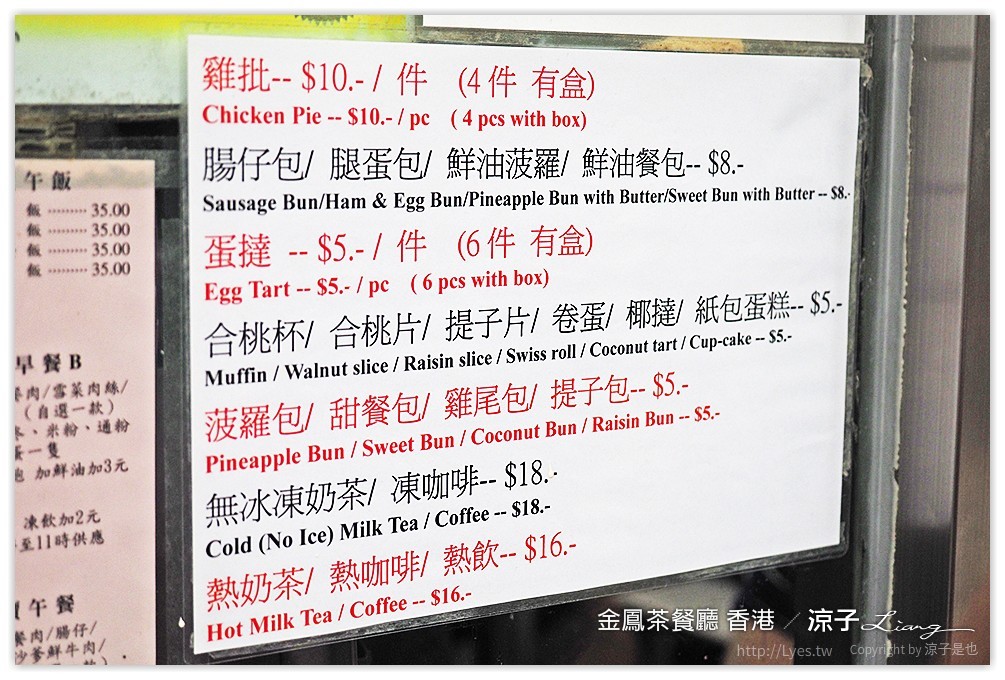 雞批-- $10.- / 件 (4 件 有盒)
Chicken Pie -- $10.- / pc ( 4 pcs with box)
腸仔包/ 腿蛋包/ 鮮油菠羅/ 鮮油餐包-- $8.-
Sausage Bun/Ham & Egg Bun/Pineapple Bun with Butter/Sweet Bun with Butter -- $8.-
蛋撻 -- $5.- / 件 (6 件 有盒)
Egg Tart -- $5.- / pc ( 6 pcs with box)
合桃杯/ 合桃片/ 提子片/ 卷蛋/ 椰撻/ 紙包蛋糕-- $5.-
Muffin / Walnut slice / Raisin slice / Swiss roll / Coconut tart / Cup-cake -- $5.-
菠羅包/ 甜餐包/ 雞尾包/ 提子包-- $5.-
Pineapple Bun / Sweet Bun / Coconut Bun / Raisin Bun -- $5.-
無冰凍奶茶/ 凍咖啡-- $18.-
Cold (No Ice) Milk Tea / Coffee -- $18.-
熱奶茶/ 熱咖啡/ 熱飲-- $16.-
Hot Milk Tea / Coffee -- $16.-
午飯
飯 ········· 35.00
飯 ········· 35.00
飯 ········· 35.00
飯 ········· 35.00
早餐B
肉/雪菜肉絲/
(自選一款)
、米粉、通粉
一隻
加鮮油加3元
凍飲加2元
至11時供應
午餐
肉/腸仔/
爹鮮牛肉/
金鳳茶餐廳 香港 / 涼子 Liang
http://Lyes.tw Copyright by 涼子是也